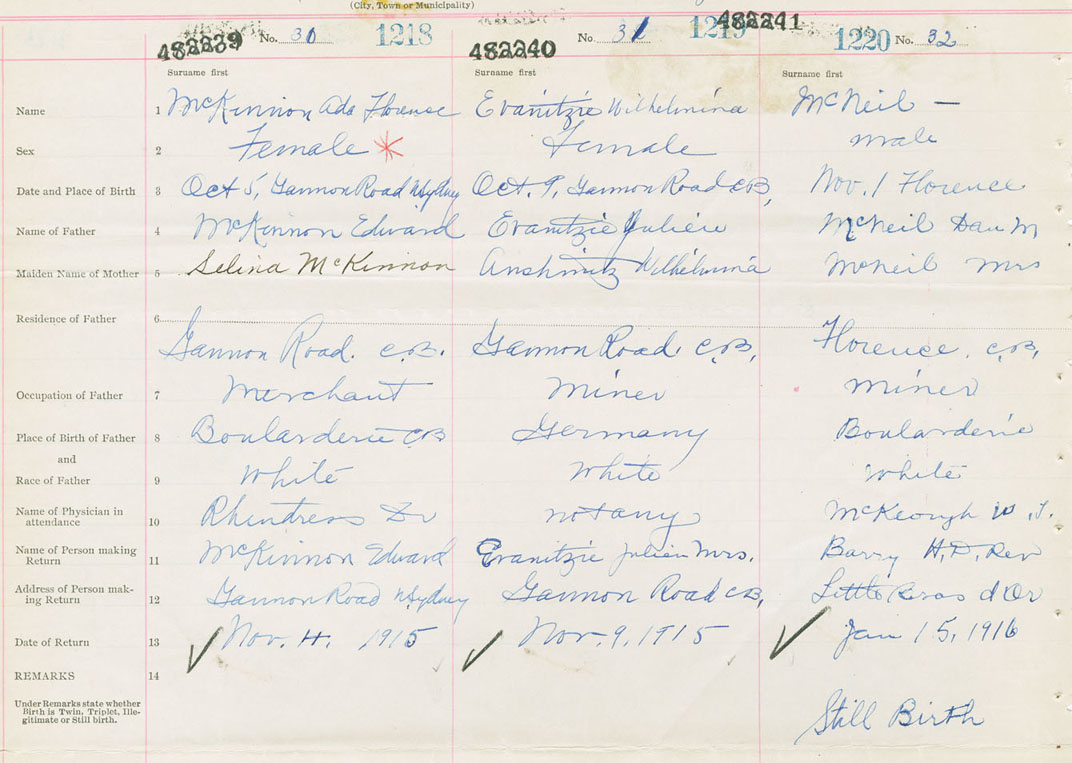 (City, Town or Municipality)
482239 No. 30 1218 482240 No. 31 1219 482241 1220 No. 32
Surname first Surname first Surname first
Name 1 McKinnon Ada Florense Evanitzie Wilhelmina McNeil —
Sex 2 Female Female male
Date and Place of Birth 3 Oct 5, Gannon Road N Sydney Oct. 9, Gannon Road C.B, Nov. 1 Florence
Name of Father 4 McKinnon Edward Evanitzie Julien McNeil Dan M
Maiden Name of Mother 5 Selina McKinnon Wilhelmina McNeil Mrs
Residence of Father 6
Gannon Road. C.B. Gannon Road C.B, Florence. C.B,
Occupation of Father 7 Merchant Miner Miner
Place of Birth of Father 8 Boularderie CB Germany Boularderie
and
Race of Father 9 White White White
Name of Physician in
attendance 10 Rhindress Dr not any McKeough W.J.
Name of Person making
Return 11 McKinnon Edward Evanitzie Julien Mrs. Barry H.D. Rev
Address of Person mak-
ing Return 12 Gannon Road N Sydney Gannon Road C.B, Little Bras d'Or
Date of Return 13 Nov. 4. 1915 Nov. 9, 1915 Jan 15, 1916
REMARKS 14
Under Remarks state whether
Birth is Twin. Triplet, Ille-
gitimate or Still birth.
Still Birth